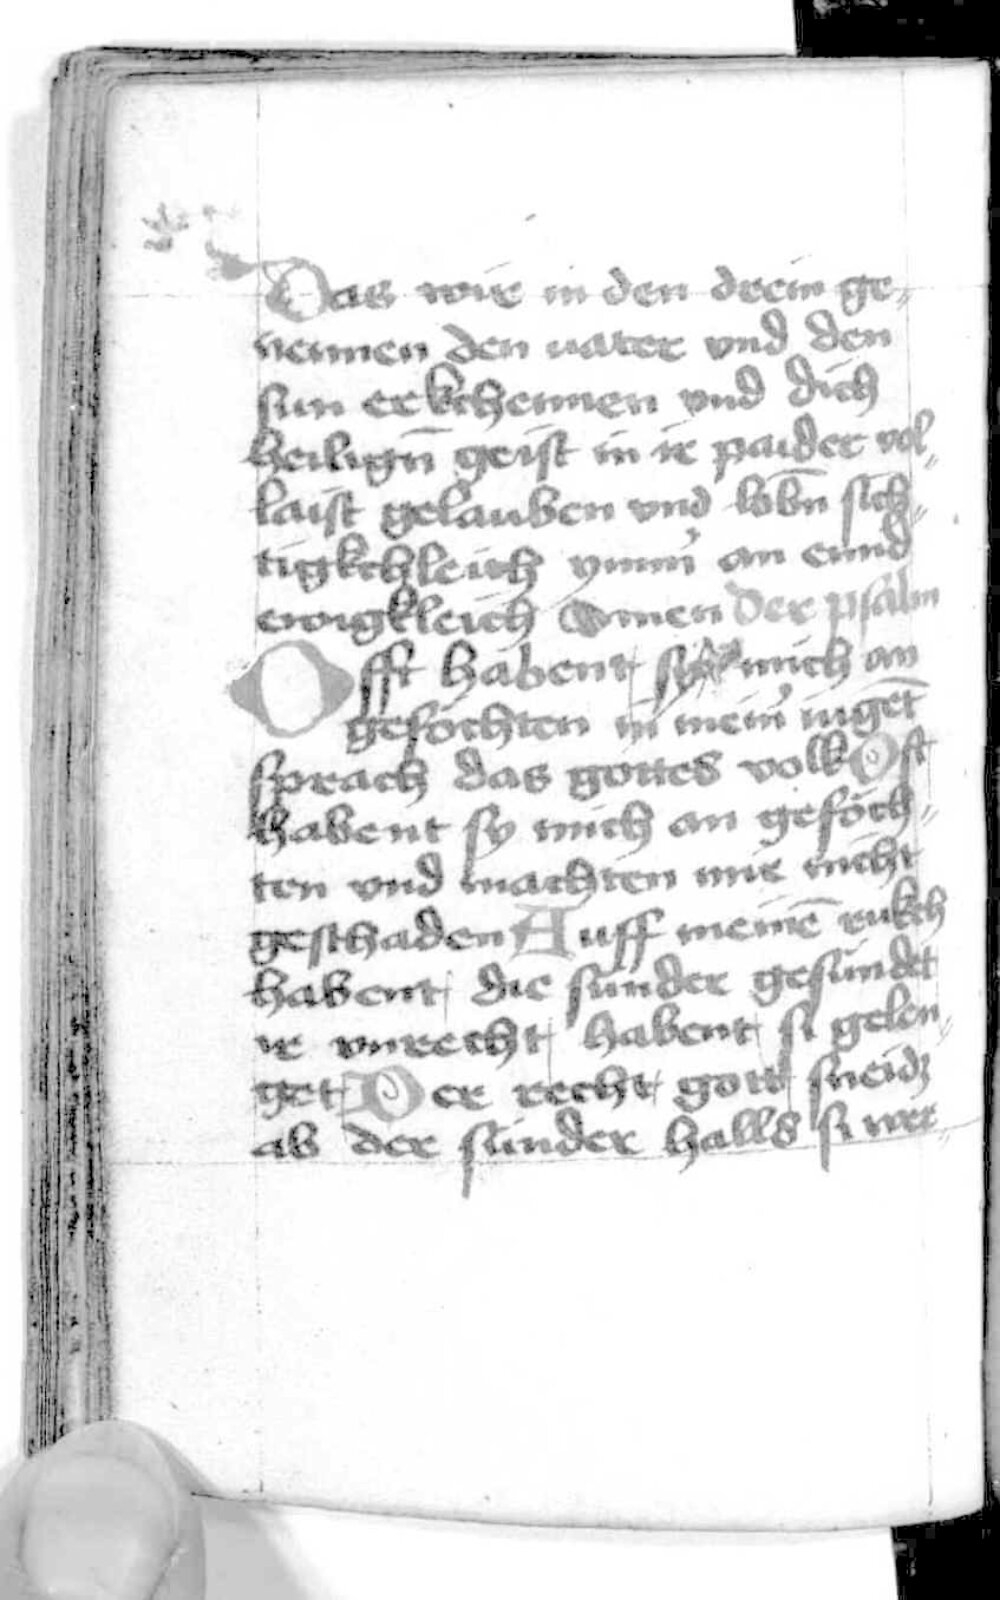 Das wir in den drein ge„
nennen den vater vnd den
sun erkchennen vnd dich
heiligñ geist in ir paider vol„
laist gelauben vnd lobñ sich„
tigkchleich ymm̄ an ennd
ewigkleich Amen Der psalm
Offt habent sy mich an
gefochten in mein̄ iuget̄
sprach das gottes volk Oft
habent sy mich an gefoch„
ten vnd machten mir nicht
geschaden Auff meinē rukch
habent die sunder gesundet
ir vnrecht habent si gelen„
get Der recht gott sneidꝫ
ab der sunder halls si wer